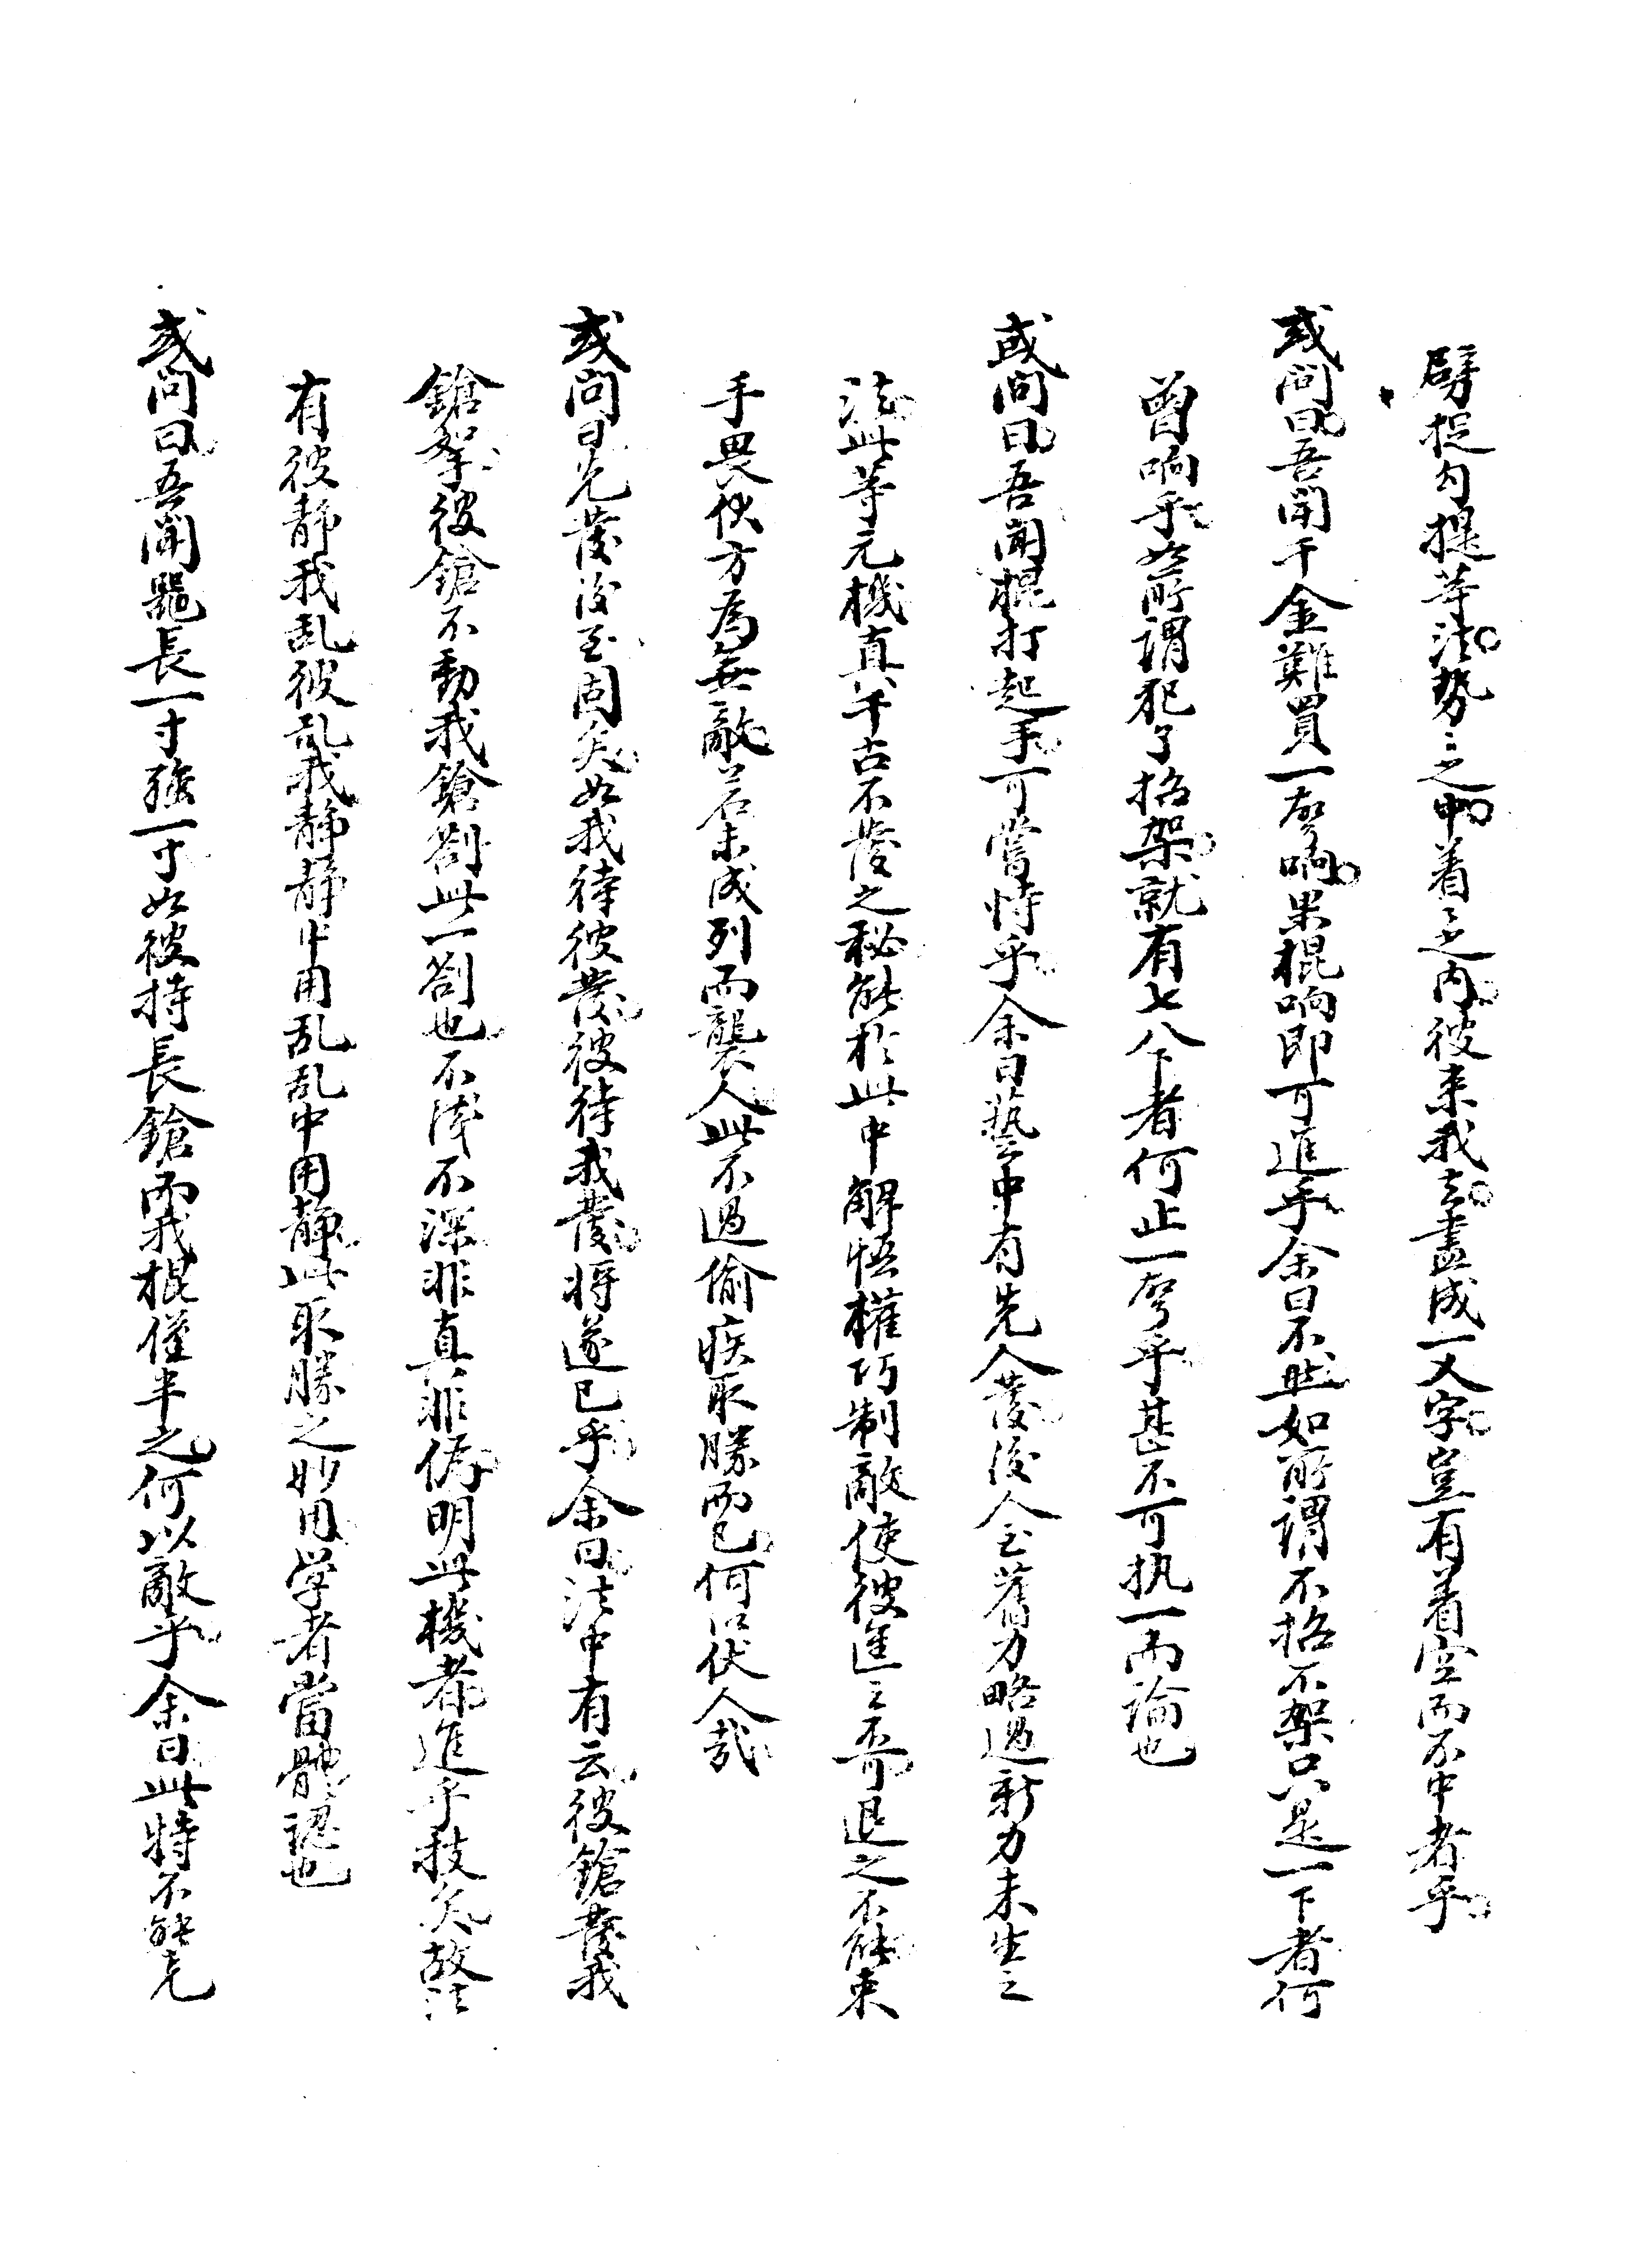 劈捉勾提等法勢〻之中着〻之內彼来我去盡成一叉字豈有着空而不中者乎
或问曰吾闻千金難買一声响果棍响即可進乎余曰不然如所谓不招不架只是一下者何
曾响乎如所谓犯了招架就有七八下者何止一声乎甚不可执一而论也
或问曰吾闻棍打起手可嘗恃乎余曰藝中有先人發後人至舊力略過新力未生之
法此等元機真千古不發之秘能於此中解悟權巧制敵使彼進之不可退之不能束
手畏伏方為無敵若未成列而襲人此不過偷疾取勝而已何以伏人哉
或问曰先發後至固矣如我待彼發彼待我發将遂已乎余曰法中有云彼鎗發我
鎗拏彼鎗不動我鎗劄此一劄也不浅不深非真非偽明此機者進乎技矣故法
有彼静我乱彼乱我静静中用乱乱中用静此取勝之妙用学者當體認也
或问曰吾闻噐長一寸强一寸如彼持長鎗而我棍僅半之何以敵乎余曰此特不能先